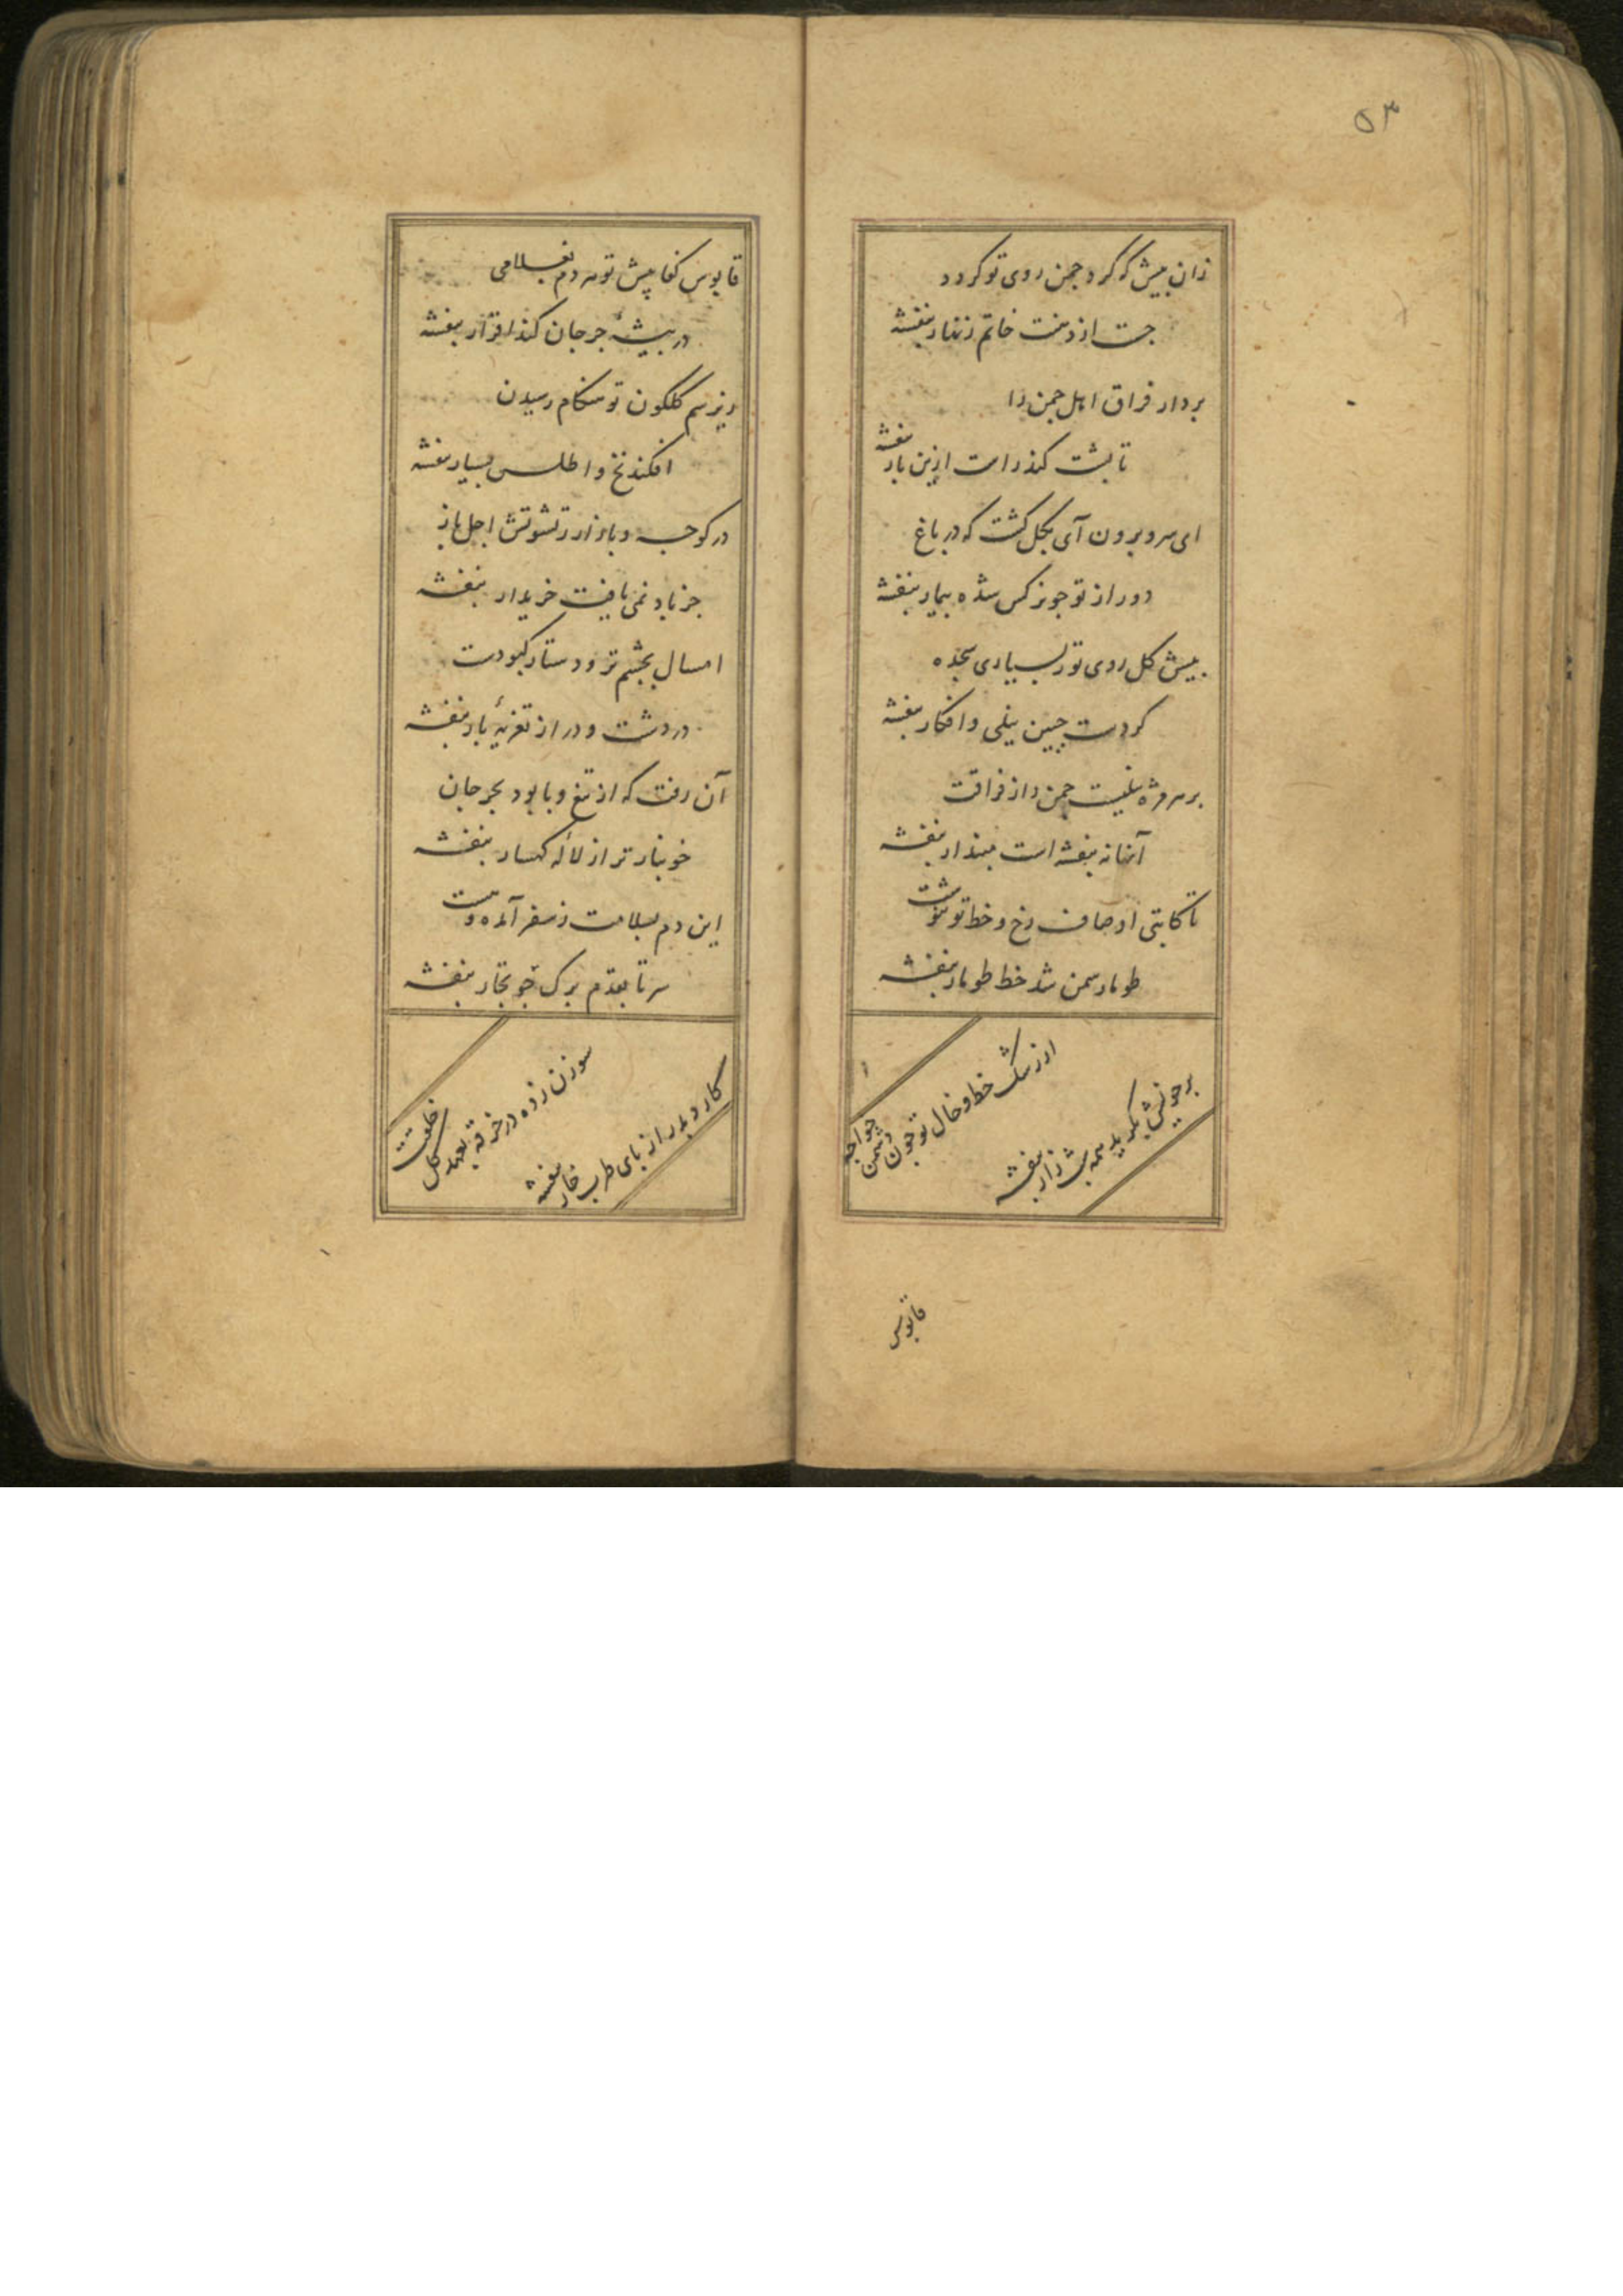 ۵۳
زان پیش که کرد چمن روی تو کردد
جست از دهنت خاتم زنهار بنفشه
بردار فراق اهل چمن را
تا پشت کند راست ازین بار بنفشه
ای سرو برون آی بکل کشت که در باغ
دور از تو چو نرکس شده بیمار بنفشه
پیش کل روی تو ز بسیاری سجده
کردست جبین نیلی و افکار بنفشه
بر سر مژه نیلیست چمن را ز فراقت
آنها نه بنفشه است مپندار بنفشه
تا کاتبی اوصاف رخ و خط تو بنوشت
طومار سمن شد خط طومار بنفشه
از رشک خط و خال تو چون دشمن خواجه
بر خویش شب زار بنفشه
قابوس
قابوس کفا پیش تو هر دم بغلامی
در بیشهٔ جرجان کند اقرار بنفشه
زیر سم کلکون تو هنکام رسیدن
افکند نخ و اطلس بسیار بنفشه
در کوچه و بازار ز اجل باز
جز باد نمی یافت خریدار بنفشه
امسال بچشم تر و دستار کبودت
در دشت و در از تعزیهٔ پار بنفشه
آن رفت که از تیغ وبا بود بجرجان
خونبار تر از لالهٔ کهسار بنفشه
این دم بسلامت ز سفر آمده
سر تا بقدم برک چو تجار بنفشه
سوزن زده در خرقه بعهد کل خلقت
کارد بدر از پای طرب خار بنفشه